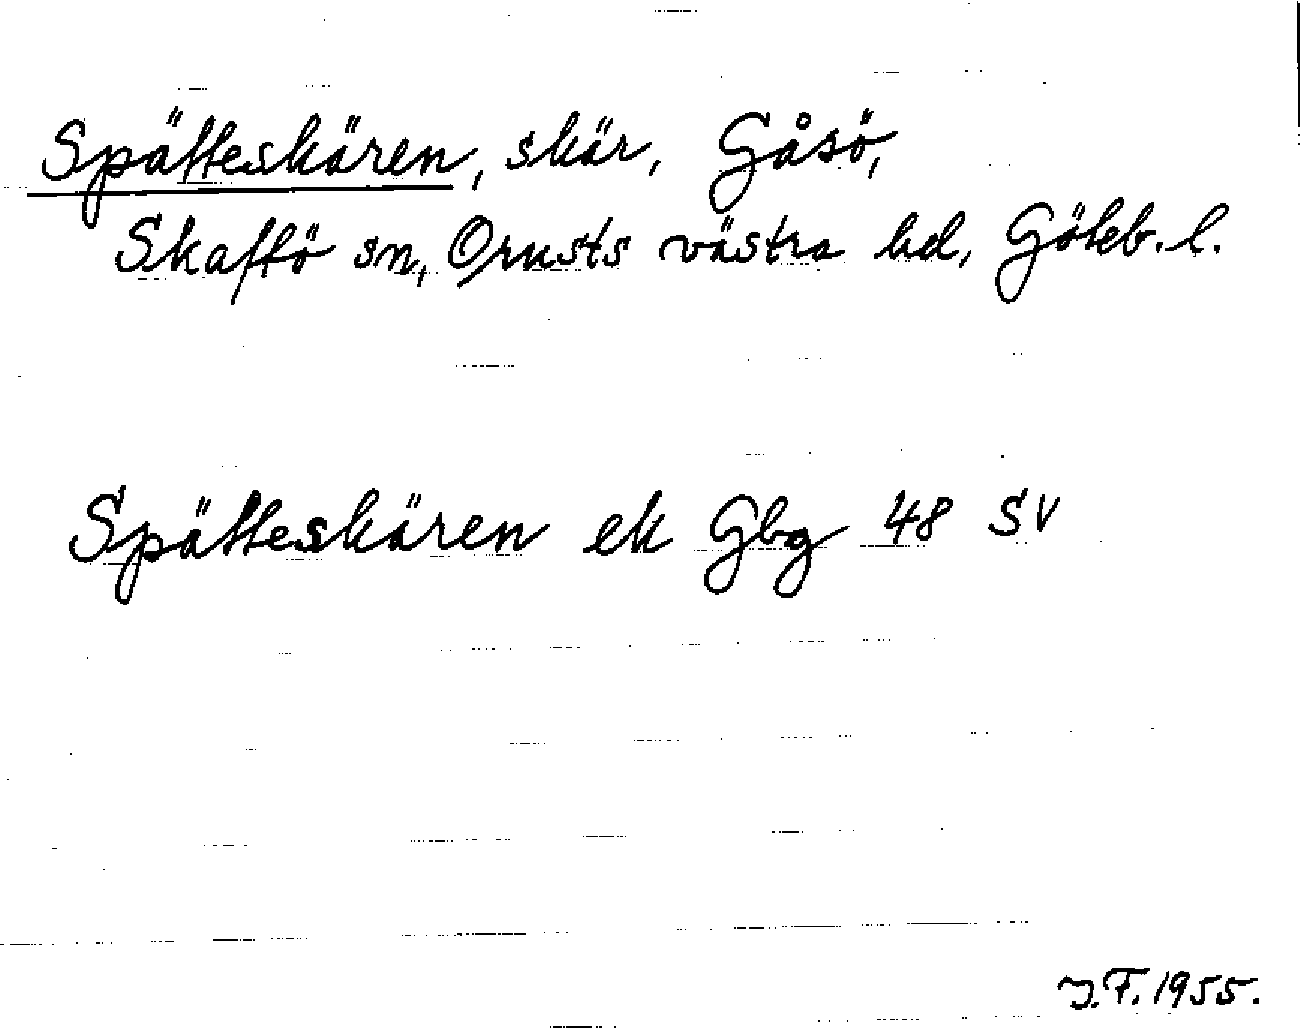 Spätteskären, skär, Gåsö,
Skaftö sn, Orusts västra hd, Göteb. l.
Spätteskären ek Gbg 48 SV
J.F. 1955.